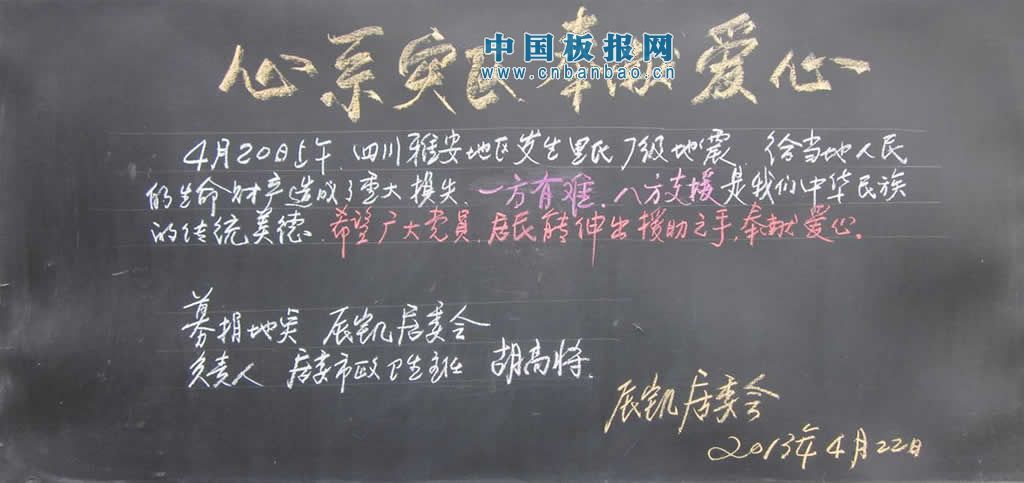 中国板报网
www.cnbanbao.cn
心系灾民奉献爱心
4月20日上午,四川雅安地区发生里氏7级地震,给当地人民
的生命财产造成了重大损失,一方有难,八方支援是我们中华民族
的传统美德,希望广大党员,居民能伸出援助之手,奉献爱心。
募捐地点 辰凯居委会
负责人 居委市政卫生主任 胡高
辰凯居委会
2013年4月22日